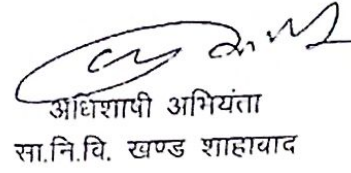 अधिशाषी अभियंता
सा.नि.वि. खण्ड शाहावाद